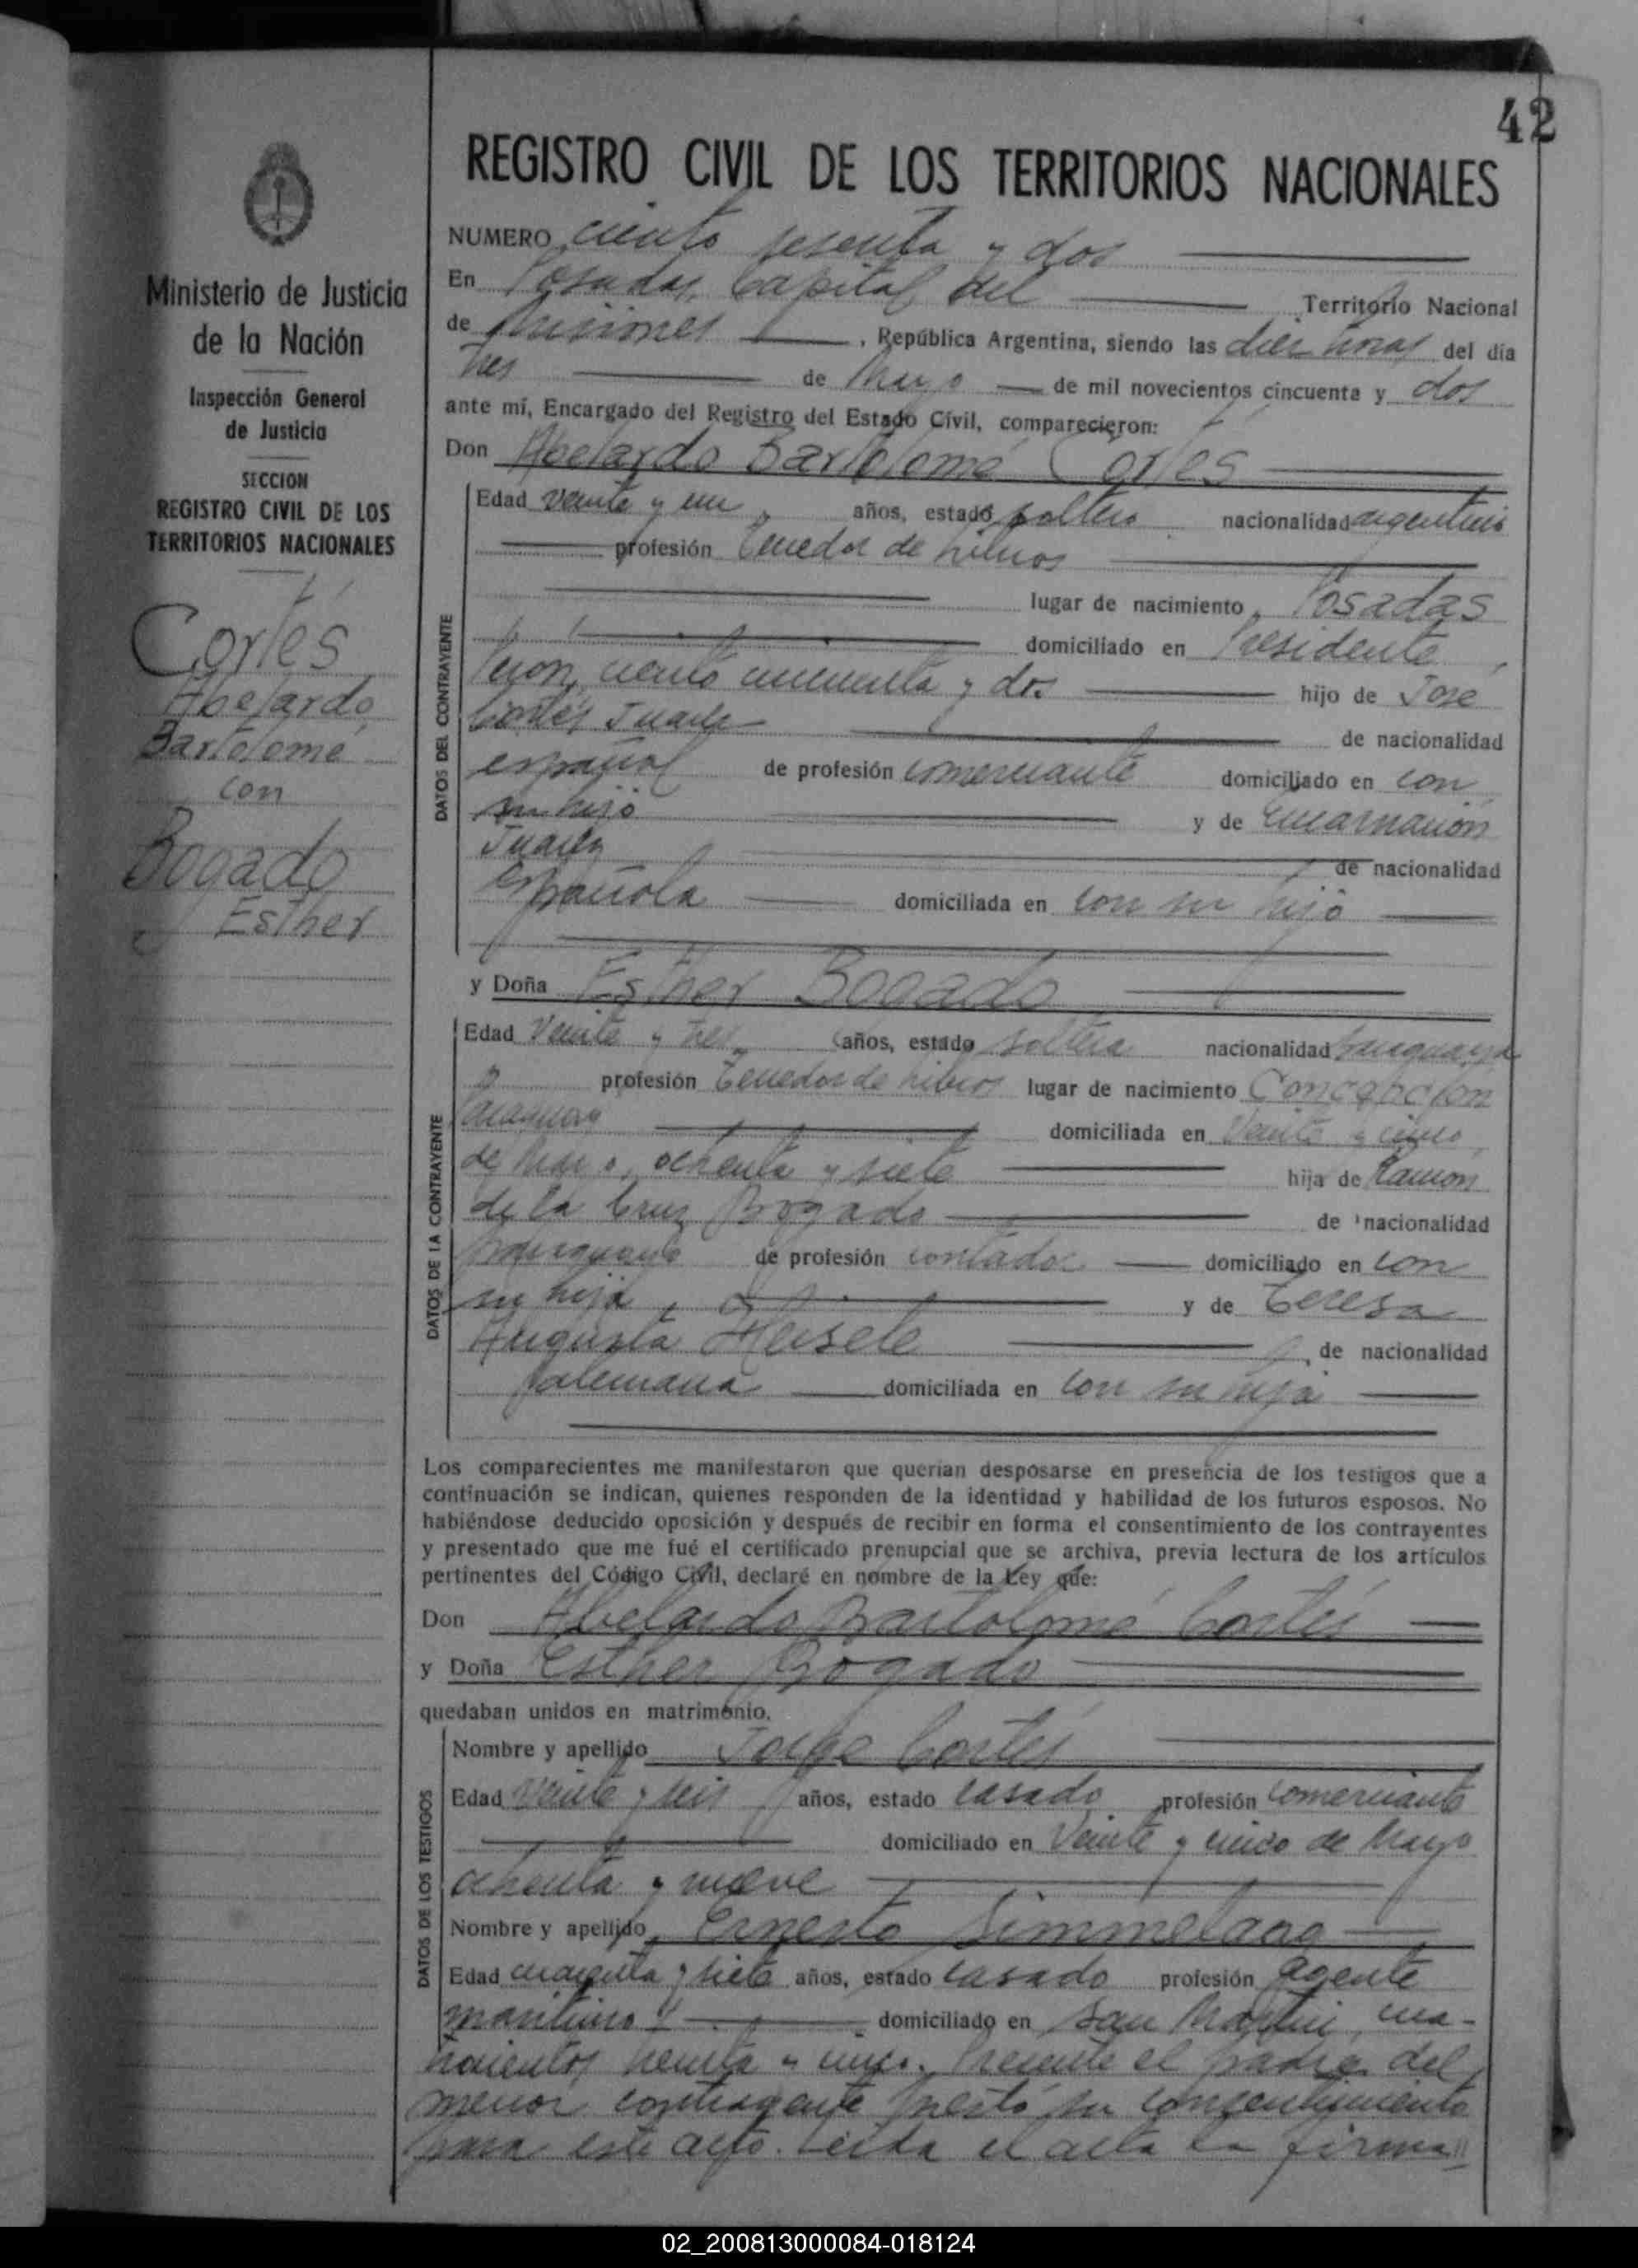 42
REGISTRO CIVIL DE LOS TERRITORIOS NACIONALES
Ministerio de Justicia
de la Nación
Inspección General
de Justicia
SECCION
REGISTRO CIVIL DE LOS
TERRITORIOS NACIONALES
Cortés
Abelardo
Bartolomé
con
Bogado
Esther
NUMERO ciento sesenta y dos
En Posadas, Capital del Territorio Nacional
de Misiones, República Argentina, siendo las diez horas del día
tres de Mayo de mil novecientos cincuenta y dos
ante mí, Encargado del Registro del Estado Civil, comparecieron:
Don Abelardo Bartolomé Cortés
DATOS DEL CONTRAYENTE
Edad veinte y un años, estado soltero nacionalidad argentino
profesión Tenedor de libros
lugar de nacimiento Posadas
domiciliado en Presidente
Peron, ciento cincuenta y dos hijo de José
Cortés Juarez de nacionalidad
español de profesión comerciante domiciliado en con
su hijo y de Encarnación
Juarez de nacionalidad
Española domiciliada en con su hijo
y Doña Esther Bogado
DATOS DE LA CONTRAYENTE
Edad Veinte y tres años, estado soltera nacionalidad Paraguaya
profesión Tenedor de libros lugar de nacimiento Concepción
Paraguay domiciliada en Veinte y cinco
de Mayo, ochenta y siete hija de Ramon
de la Cruz Bogado de nacionalidad
paraguayo de profesión contador domiciliado en con
su hija, y de Teresa
Augusta Heisele, de nacionalidad
alemana domiciliada en con su hija
Los comparecientes me manifestaron que querían desposarse en presencia de los testigos que a
continuación se indican, quienes responden de la identidad y habilidad de los futuros esposos. No
habiéndose deducido oposición y después de recibir en forma el consentimiento de los contrayentes
y presentado que me fué el certificado prenupcial que se archiva, previa lectura de los artículos
pertinentes del Código Civil, declaré en nombre de la Ley que:
Don Abelardo Bartolomé Cortés
y Doña Esther Bogado
quedaban unidos en matrimonio.
DATOS DE LOS TESTIGOS
Nombre y apellido Jorge Cortés
Edad veinte y seis años, estado casado profesión comerciante
domiciliado en Veinte y cinco de Mayo
ochenta y nueve
Nombre y apellido Ernesto Simmelaag
Edad cuarenta y siete años, estado casado profesión Agente
maritimo domiciliado en San Martin, cua-
trocientos treinta y cinco. Presente el padre del
menor contrayente prestó su consentimiento
para este acto. Leida el acta la firma//
02_200813000084-018124